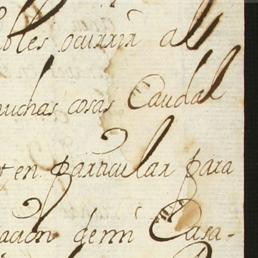 bles ocurrir al
muchas cosas Caudal
en particular para
acion demi Casa-